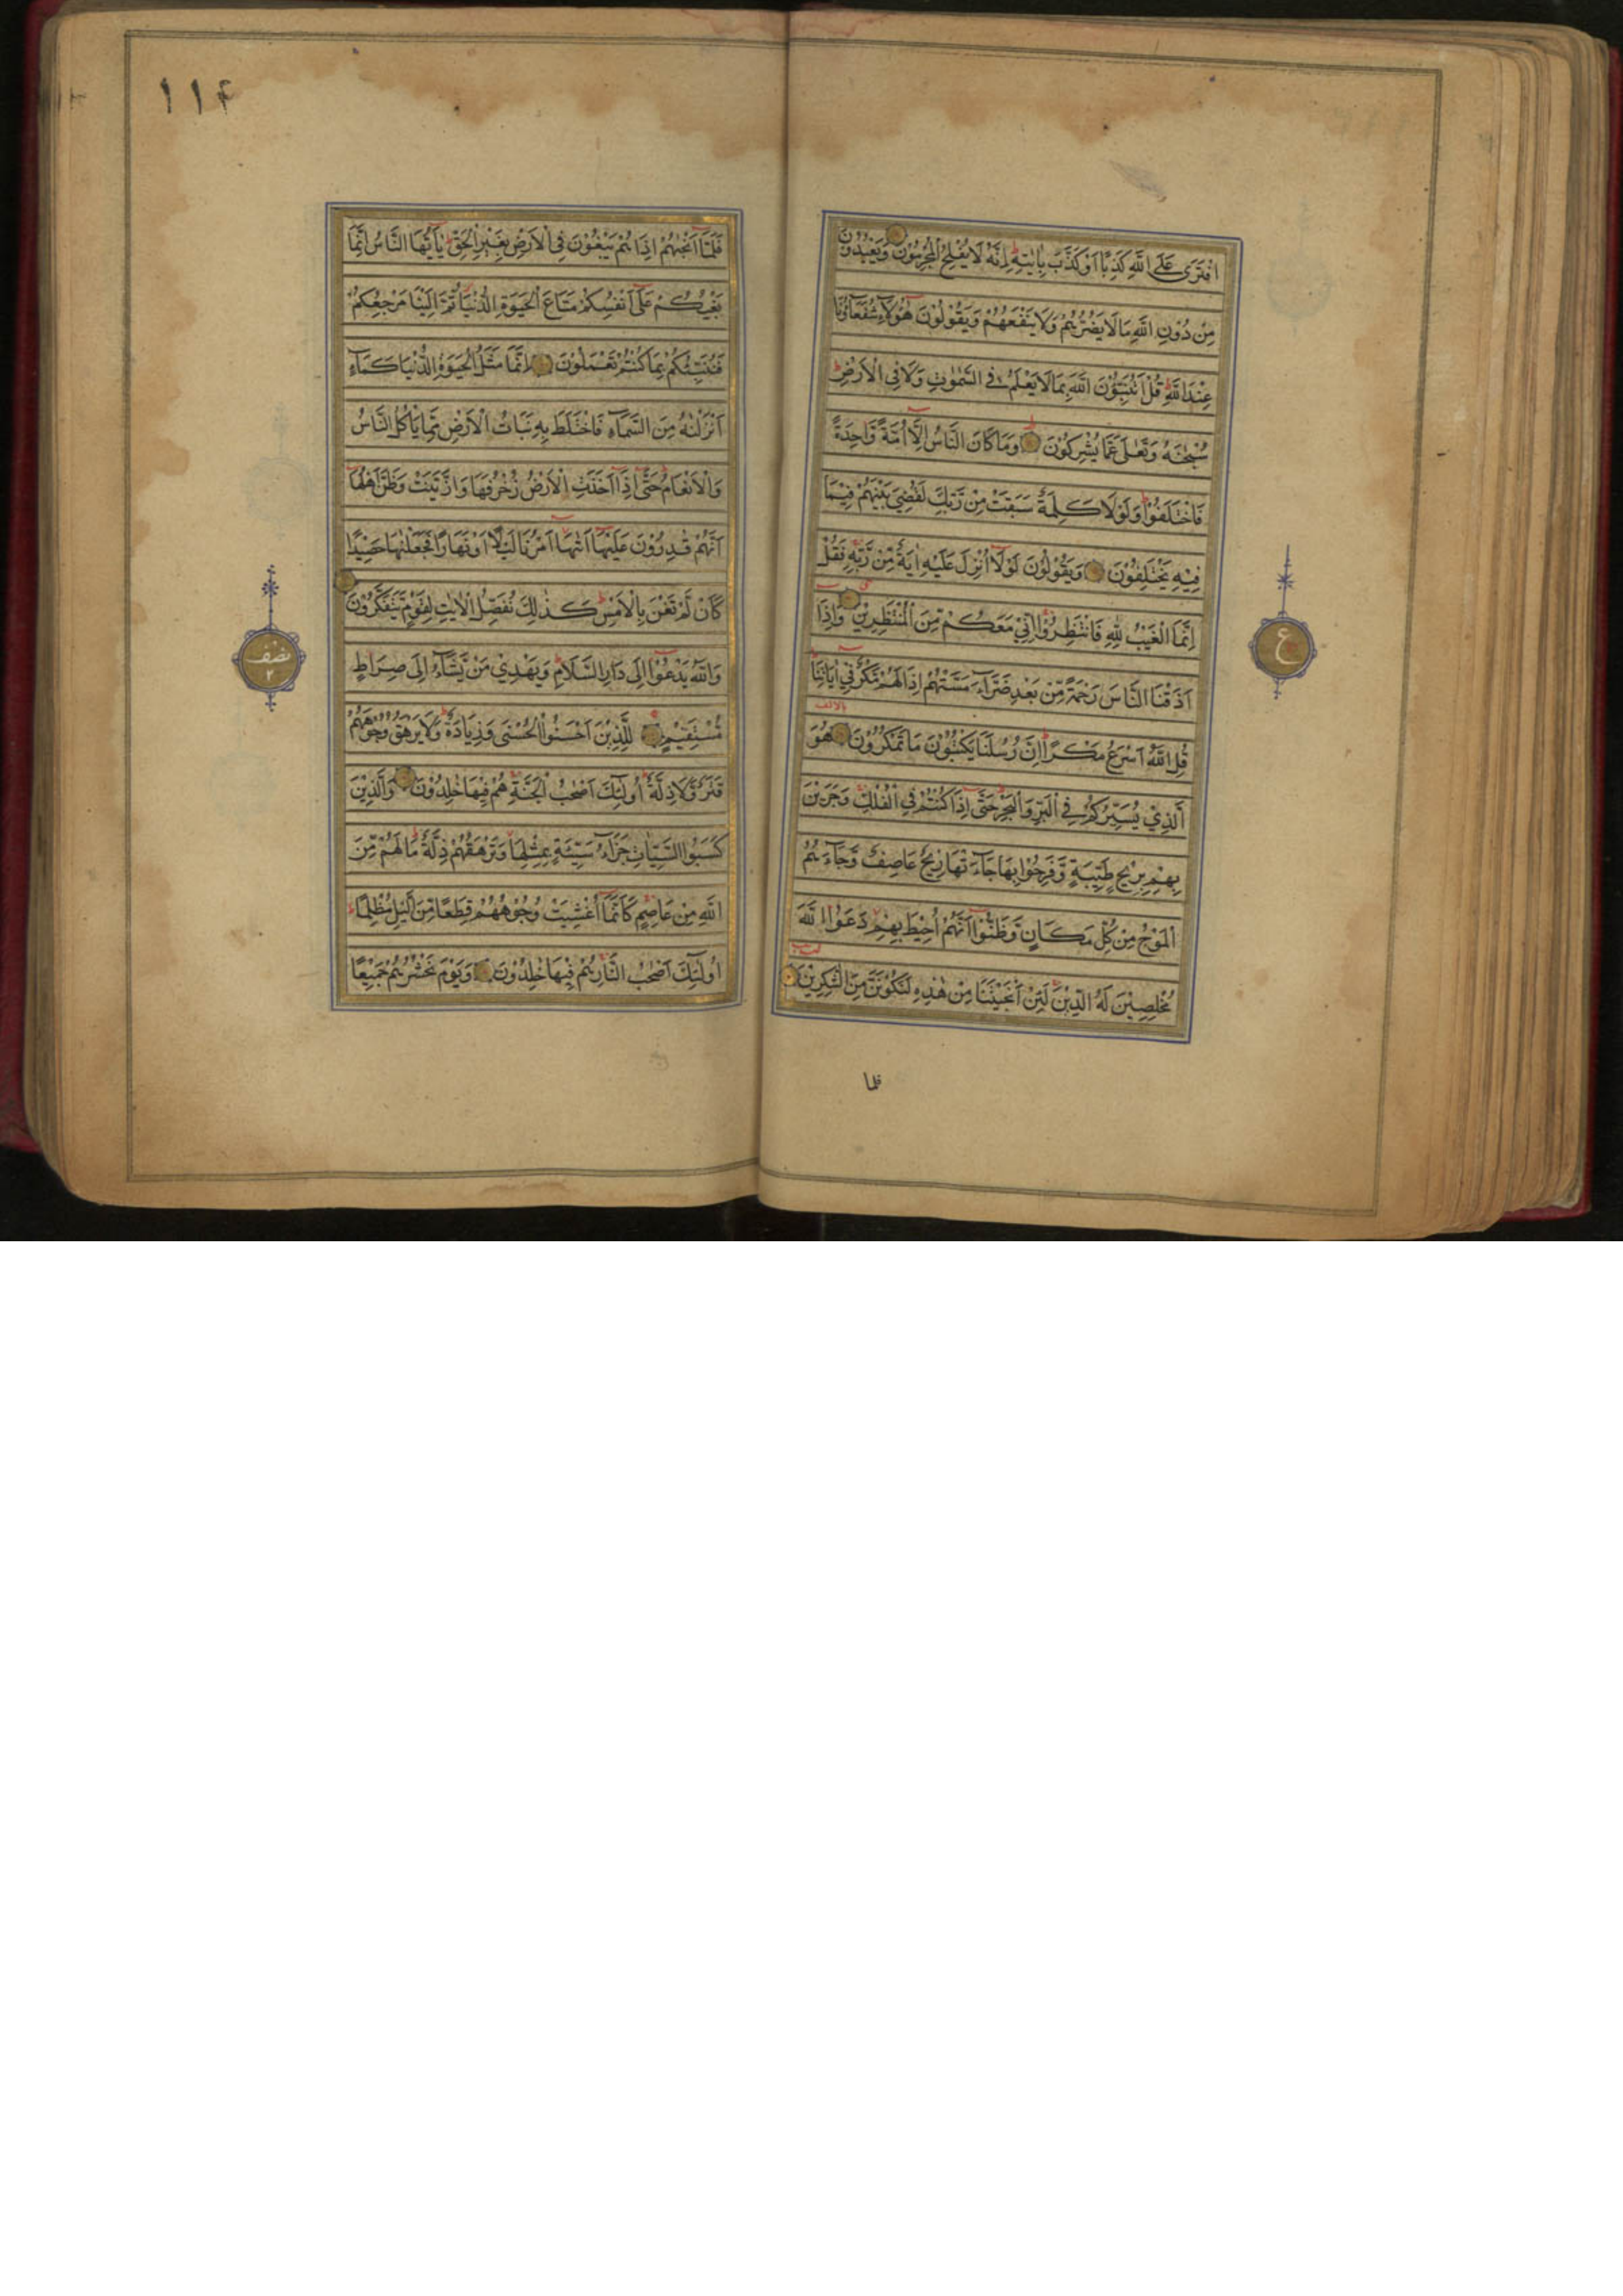 افْتَرَى عَلَى اللَّهِ كَذِبًا اَوْ كَذَّبَ بِاٰيٰتِهٖ اِنَّهُ لَا يُفْلِحُ الْمُجْرِمُوْنَ وَيَعْبُدُوْنَ
مِنْ دُوْنِ اللَّهِ مَا لَا يَضُرُّهُمْ وَلَا يَنْفَعُهُمْ وَيَقُوْلُوْنَ هٰٓؤُلَاۤءِ شُفَعَاۤؤُنَا
عِنْدَ اللَّهِ قُلْ اَتُنَبِّؤُنَ اللَّهَ بِمَا لَا يَعْلَمُ فِي السَّمٰوٰتِ وَلَا فِي الْاَرْضِ
سُبْحٰنَهُ وَتَعٰلٰى عَمَّا يُشْرِكُوْنَ وَمَا كَانَ النَّاسُ اِلَّاۤ اُمَّةً وَّاحِدَةً
فَاخْتَلَفُوْا وَلَوْلَا كَلِمَةٌ سَبَقَتْ مِنْ رَّبِّكَ لَقُضِيَ بَيْنَهُمْ فِيْمَا
فِيْهِ يَخْتَلِفُوْنَ وَيَقُوْلُوْنَ لَوْلَاۤ اُنْزِلَ عَلَيْهِ اٰيَةٌ مِّنْ رَّبِّهٖ فَقُلْ
اِنَّمَا الْغَيْبُ لِلّٰهِ فَانْتَظِرُوْا اِنِّيْ مَعَكُمْ مِّنَ الْمُنْتَظِرِيْنَ وَاِذَا
اَذَقْنَا النَّاسَ رَحْمَةً مِّنْ بَعْدِ ضَرَّاۤءَ مَسَّتْهُمْ اِذَا لَهُمْ مَّكْرٌ فِيْ اٰيَاتِنَا
قُلِ اللَّهُ اَسْرَعُ مَكْرًا اِنَّ رُسُلَنَا يَكْتُبُوْنَ مَا تَمْكُرُوْنَ هُوَ
الَّذِيْ يُسَيِّرُكُمْ فِي الْبَرِّ وَالْبَحْرِ حَتّٰى اِذَا كُنْتُمْ فِي الْفُلْكِ وَجَرَيْنَ
بِهِمْ بِرِيْحٍ طَيِّبَةٍ وَّفَرِحُوْا بِهَا جَاۤءَتْهَا رِيْحٌ عَاصِفٌ وَّجَاۤءَهُمُ
الْمَوْجُ مِنْ كُلِّ مَكَانٍ وَّظَنُّوْا اَنَّهُمْ اُحِيْطَ بِهِمْ دَعَوُا اللَّهَ
مُخْلِصِيْنَ لَهُ الدِّيْنَ لَئِنْ اَنْجَيْتَنَا مِنْ هٰذِهٖ لَنَكُوْنَنَّ مِنَ الشّٰكِرِيْنَ
فلما
ع
١١٤
فَلَمَّاۤ اَنْجٰىهُمْ اِذَا هُمْ يَبْغُوْنَ فِي الْاَرْضِ بِغَيْرِ الْحَقِّ يٰۤاَيُّهَا النَّاسُ اِنَّمَا
بَغْيُكُمْ عَلٰۤى اَنْفُسِكُمْ مَتَاعَ الْحَيٰوةِ الدُّنْيَا ثُمَّ اِلَيْنَا مَرْجِعُكُمْ
فَنُنَبِّئُكُمْ بِمَا كُنْتُمْ تَعْمَلُوْنَ اِنَّمَا مَثَلُ الْحَيٰوةِ الدُّنْيَا كَمَاۤءٍ
اَنْزَلْنٰهُ مِنَ السَّمَاۤءِ فَاخْتَلَطَ بِهٖ نَبَاتُ الْاَرْضِ مِمَّا يَأْكُلُ النَّاسُ
وَالْاَنْعَامُ حَتّٰۤى اِذَاۤ اَخَذَتِ الْاَرْضُ زُخْرُفَهَا وَازَّيَّنَتْ وَظَنَّ اَهْلُهَاۤ
اَنَّهُمْ قٰدِرُوْنَ عَلَيْهَاۤ اَتٰىهَاۤ اَمْرُنَا لَيْلًا اَوْ نَهَارًا فَجَعَلْنٰهَا حَصِيْدًا
كَاَنْ لَّمْ تَغْنَ بِالْاَمْسِ كَذٰلِكَ نُفَصِّلُ الْاٰيٰتِ لِقَوْمٍ يَّتَفَكَّرُوْنَ
وَاللَّهُ يَدْعُوْۤا اِلٰى دَارِ السَّلَامِ وَيَهْدِيْ مَنْ يَّشَاۤءُ اِلٰى صِرَاطٍ
مُّسْتَقِيْمٍ لِلَّذِيْنَ اَحْسَنُوا الْحُسْنٰى وَزِيَادَةٌ وَلَا يَرْهَقُ وُجُوْهَهُمْ
قَتَرٌ وَّلَا ذِلَّةٌ اُولٰۤئِكَ اَصْحٰبُ الْجَنَّةِ هُمْ فِيْهَا خٰلِدُوْنَ وَالَّذِيْنَ
كَسَبُوا السَّيِّاٰتِ جَزَاۤءُ سَيِّئَةٍ بِمِثْلِهَا وَتَرْهَقُهُمْ ذِلَّةٌ مَا لَهُمْ مِّنَ
اللَّهِ مِنْ عَاصِمٍ كَاَنَّمَاۤ اُغْشِيَتْ وُجُوْهُهُمْ قِطَعًا مِّنَ الَّيْلِ مُظْلِمًا
اُولٰۤئِكَ اَصْحٰبُ النَّارِ هُمْ فِيْهَا خٰلِدُوْنَ وَيَوْمَ نَحْشُرُهُمْ جَمِيْعًا
نصف
٢